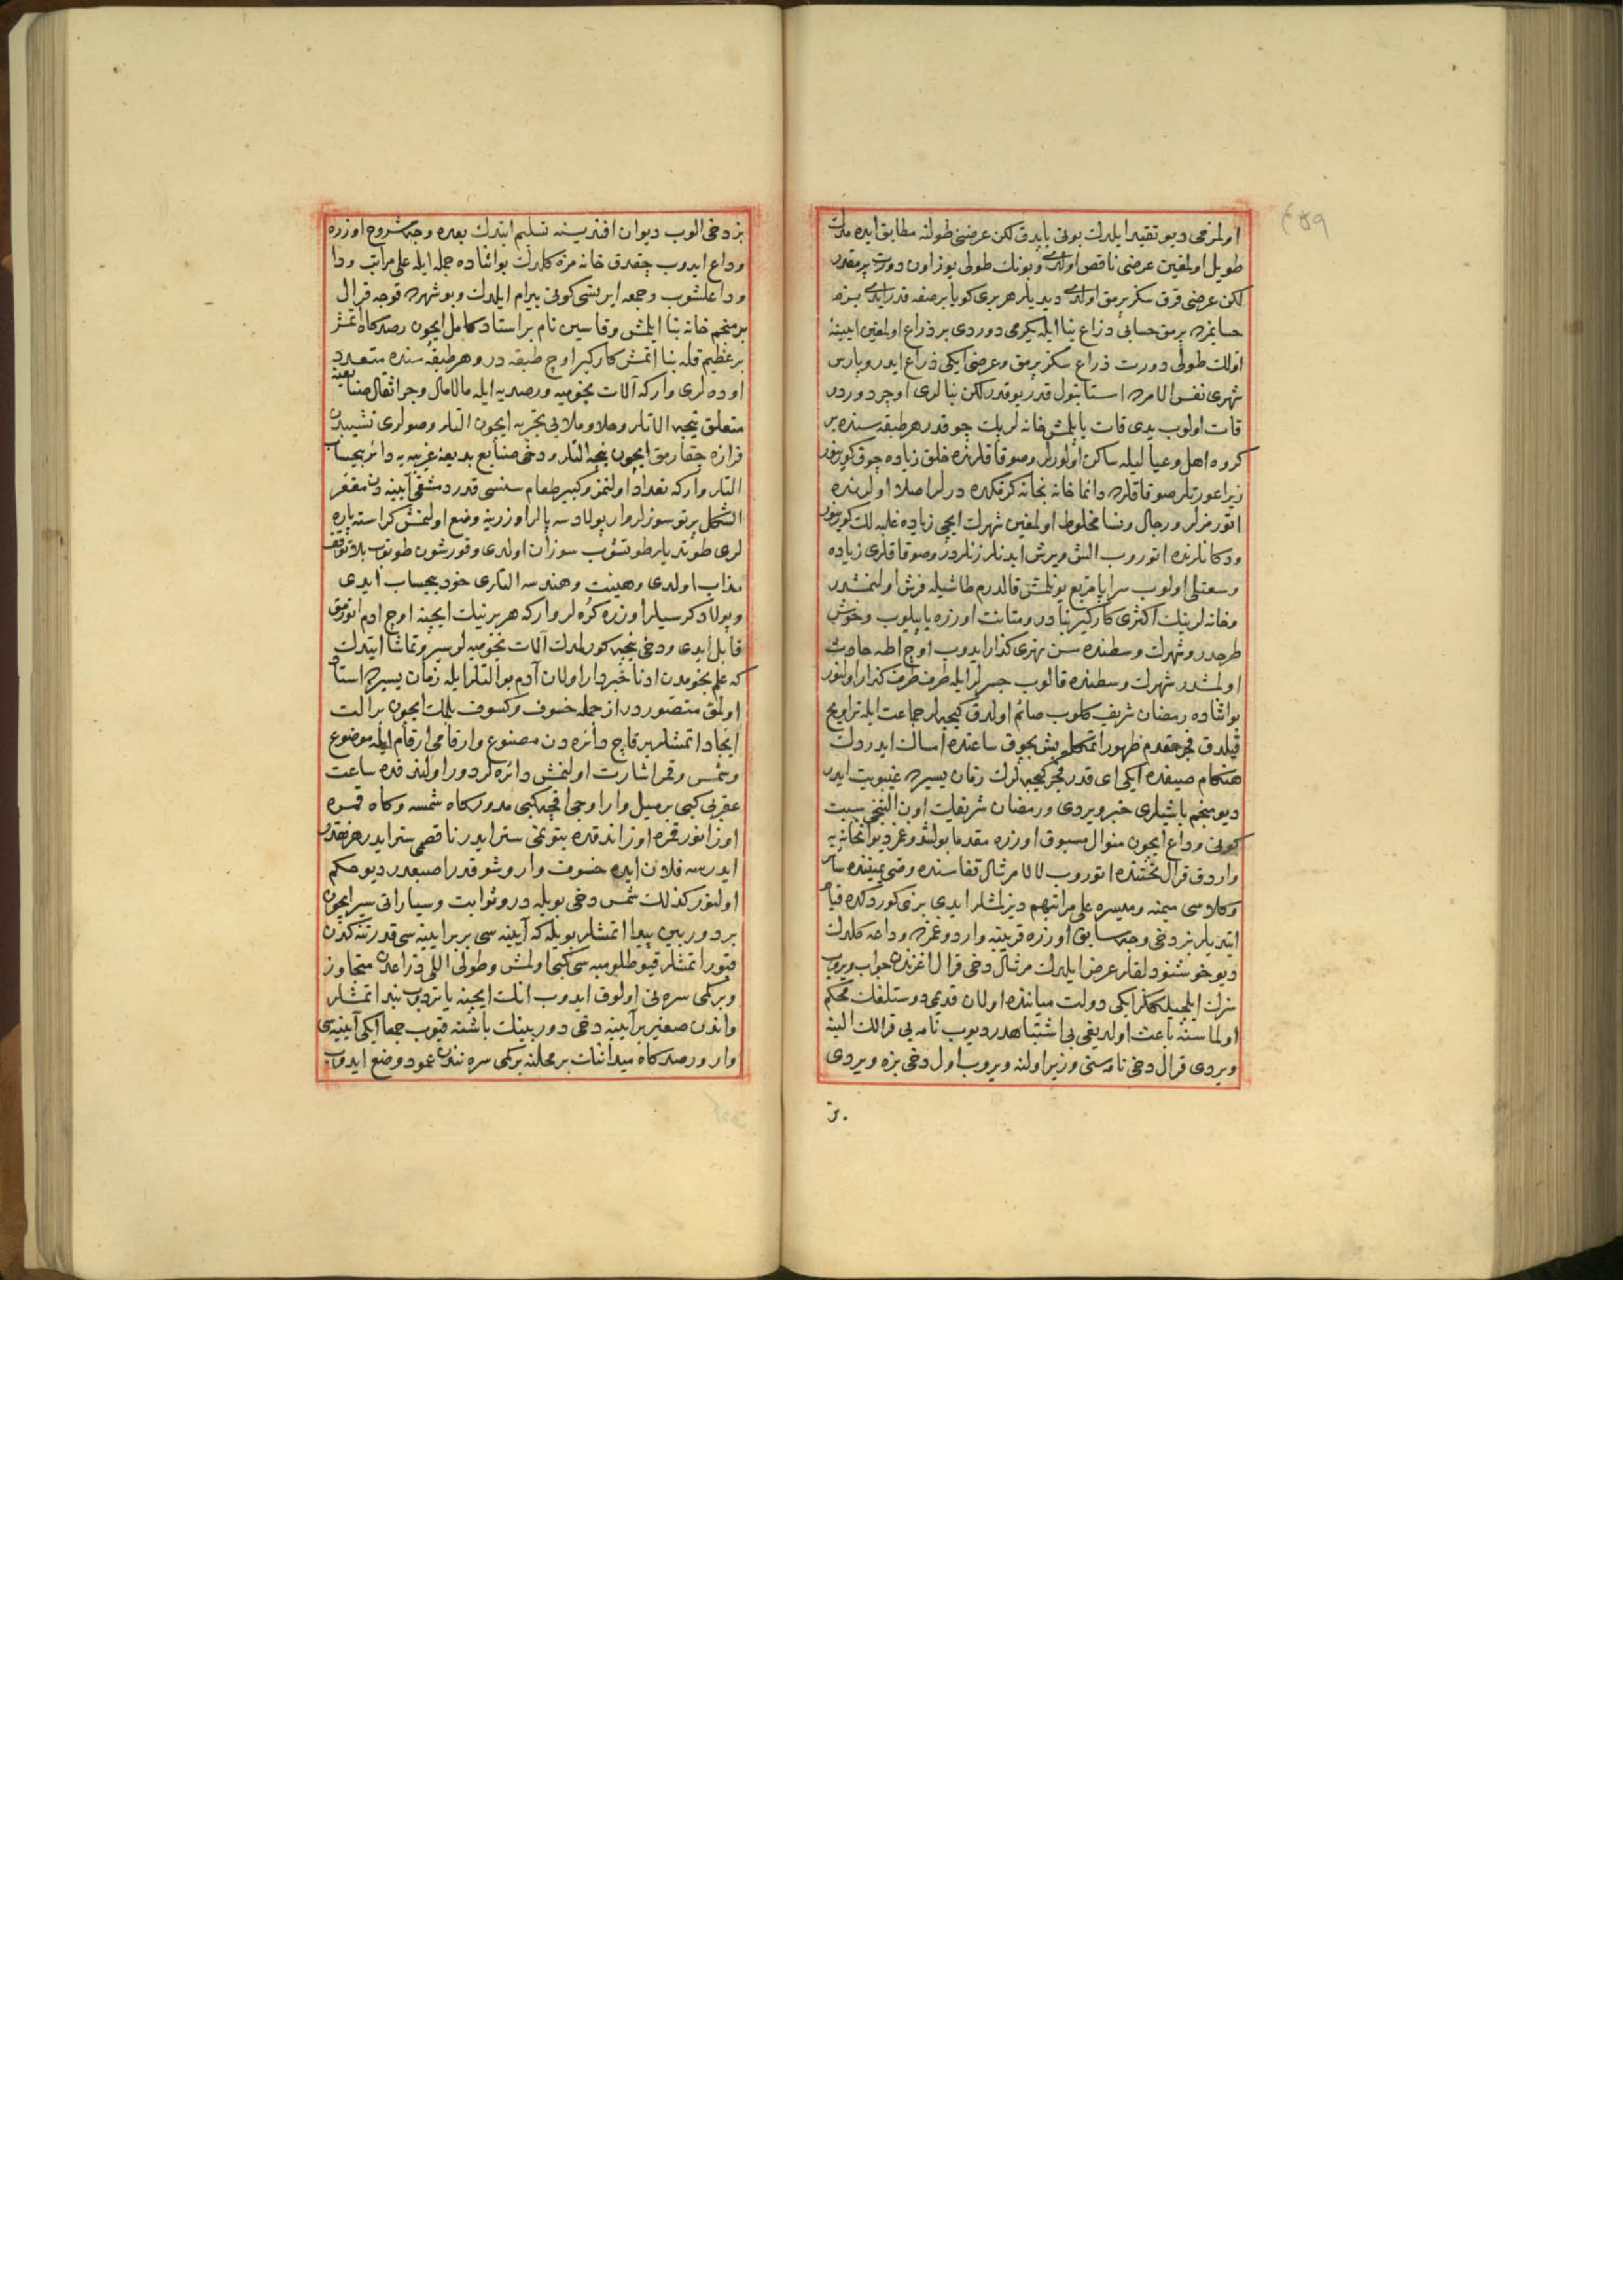 اولمزمى ديو تقيد ايلدك بونى ياپدق لكن عرضنى طولنه مطابق ايده مدك
طويل اولمغين عرضى ناقص اولدى وبونك طولى يوز اون دورت پرمقدر
لكن عرضى قرق سكز پرمق اولدى ديديلر هر برى كويا بر صفه قدر ايدى بزم
حسابمزده پرمق حسابى ذراع بنا ايله يكرمى دوردى بر ذراع اولمغين آيينه
اولك طولى دورت ذراع سكز پرمق وعرضى ايكى ذراع ايدر وپارس
شهرى نفس الامرده استانبول قدر يوقدر لكن بنالرى اوچر دوردر
قات اولوب يدى قات ياپلمش خانه لرى پك چوقدر هر طبقه سنده بر
كروه اهل وعياليله ساكن اولورلر وصوقاقلرنده خلق زياده چوق كورينور
زيرا عورتلر صوقاقلرده دائما خانه بخانه كزمكده درلر اصلا اولرنده
اتورمزلر ورجال ونسا مخلوط اولمغين شهرك ايچى زياده غلبه لك كورينور
ودكانلرنده اتوروب الش ويرش ايدنلر زنلردر وصوقاقلرى زياده
وسعتلى اولوب سراپا مربع يونلمش قالدرم طاشيله فرش اولنمشدر
وخانه لرينك اكثرى كاركير بنادر ومتانت اوزره ياپيلوب وخوش
طرحدر وشهرك وسطنده سن نهرى كذار ايدوب اوچ اطه حادث
اولمشدر شهرك وسطنده قالوب جسرلر ايله طرف طرف كذار اولنور
بو اثناده رمضان شريف كلوب صائم اولدق كيجه لر جماعت ايله تراويح
قيلدق فجر مقدم ظهور اتمكله بش بچوق ساعتده امساك ايدردك
هنكام صيفده ايكى اى قدر فجر كيجه لرك زمان يسيرده غيبوبت ايدر
ديو منجم باشيلرى خبر ويردى ورمضان شريفك اون التنجى سبت
كونى وداع ايچون منوال مسبوق اوزره مقدما بولشدوغمز ديوانخانه يه
واردق قرال تختنده اتوروب لالا مرشال قفاسنده وصى يميننده سائر
وكلاسى ميمنه وميسره على مراتبهم ديزلمشلر ايدى بزى كوردكده قيام
ايتديلر بز دخى وجه سابق اوزره قربينه واردوغمزده وداعه كلدك
ديو خوشنودلقلر عرض ايلدك مرشال دخى قرال اغزندن جواب ويروب
سزك ايلچيلككز ايكى دولت مياننده اولان قديمى دوستلغك محكم
اولماسنه باعث اولديغى بى اشتباهدر ديوب نامه يى قرالك الينه
ويردى قرال دخى نامه سنى وزير اولنه ويروب اول دخى بزه ويردى
بز
بز دخى الوب ديوان افنديسنه تسليم ايتدك بعده وجه مشروح اوزره
وداع ايدوب چقدق خانه مزه كلدك بو اثناده جمله ايله على مراتب ودا
وداعلشوب وجمعه ايرتسى كونى بيرام ايلدك وبو شهرده قوجه قرال
بر منجم خانه بنا ايلمش وقاسين نام بر استاد كامل ايچون رصدكاه اتمش
بر عظيم قله بنا اتمش كاركير اوچ طبقه در وهر طبقه سنده متعدد
اوده لرى وار كه آلات نجوميه ورصديه ايله مالامال وجر اثقال صنايعنه
متعلق نيجه آلاتلر وخلا وملايى تجربه ايچون التلر وصولرى نشيبدن
فرازه چقارمق ايچون نيجه التلر ودخى صنايع بديعه غريبه يه دائر بيحساب
التلر وار كه تعداد اولنمز وكبير طعام سنيسى قدر دمشقى آيينه دن مقعر
الشكل پرتوسوزلر وار پولاد سه پالر اوزرينه وضع اولنمش كراسته پاره
لرى طوتديلر طوتشوب سوزان اولدى وقورشون طوتوب بلاتوقف
مذاب اولدى وهيئت وهندسه التلرى خود بيحساب ايدى
وپولاد كرسيلر اوزره كره لر وار كه هر برينك ايچنه اوچ ادم اتورمق
قابل ايدى ودخى نيجه كورلمدك آلات نجوميه لر سير وتماشا ايتدك
كه علم نجومدن ادنا خبردار اولان آدم بو التلر ايله زمان يسيرده استاد
اولمق متصوردر از جمله خسوف وكسوف بلمك ايچون بر الت
ايجاد اتمشلر بر قاچ دائره دن مصنوع وارقامى ارقام ايله موضوع
وشمس وقمر اشارت اولنمش دائره لر دور اولندقده ساعت
عقربى كبى بر ميل وار اوجى اقچه كبى مدور كاه شمسه وكاه قمره
اوزانور قمره اوزاندقده بتونمى ستر ايدر ناقصمى ستر ايدر هر نقدر
ايدرسه فلان ايده خسوف وار وشو قدر اصبعدر ديو حكم
اولنور كذلك شمس دخى بويله در وثوابت وسياراتى سير ايچون
بر دوربين پيدا اتمشلر بويله كه آيينه سى بربر آيينه سى قدر تنكه دن
قنور اتمشلر قيو طلومبه سى كبى اولمش وطولى اللى ذراعدن متجاوز
وبر كمى سره نى اولوق ايدوب انك ايچنه ياتردوب بند اتمشلر
واندن صغير بر آيينه دخى دوربينك باشنه قنوب جمعا ايكى آيينه سى
وار ورصدكاه ميداننك بر محلنه بر كمى سره ننندن عمود وضع ايدوب